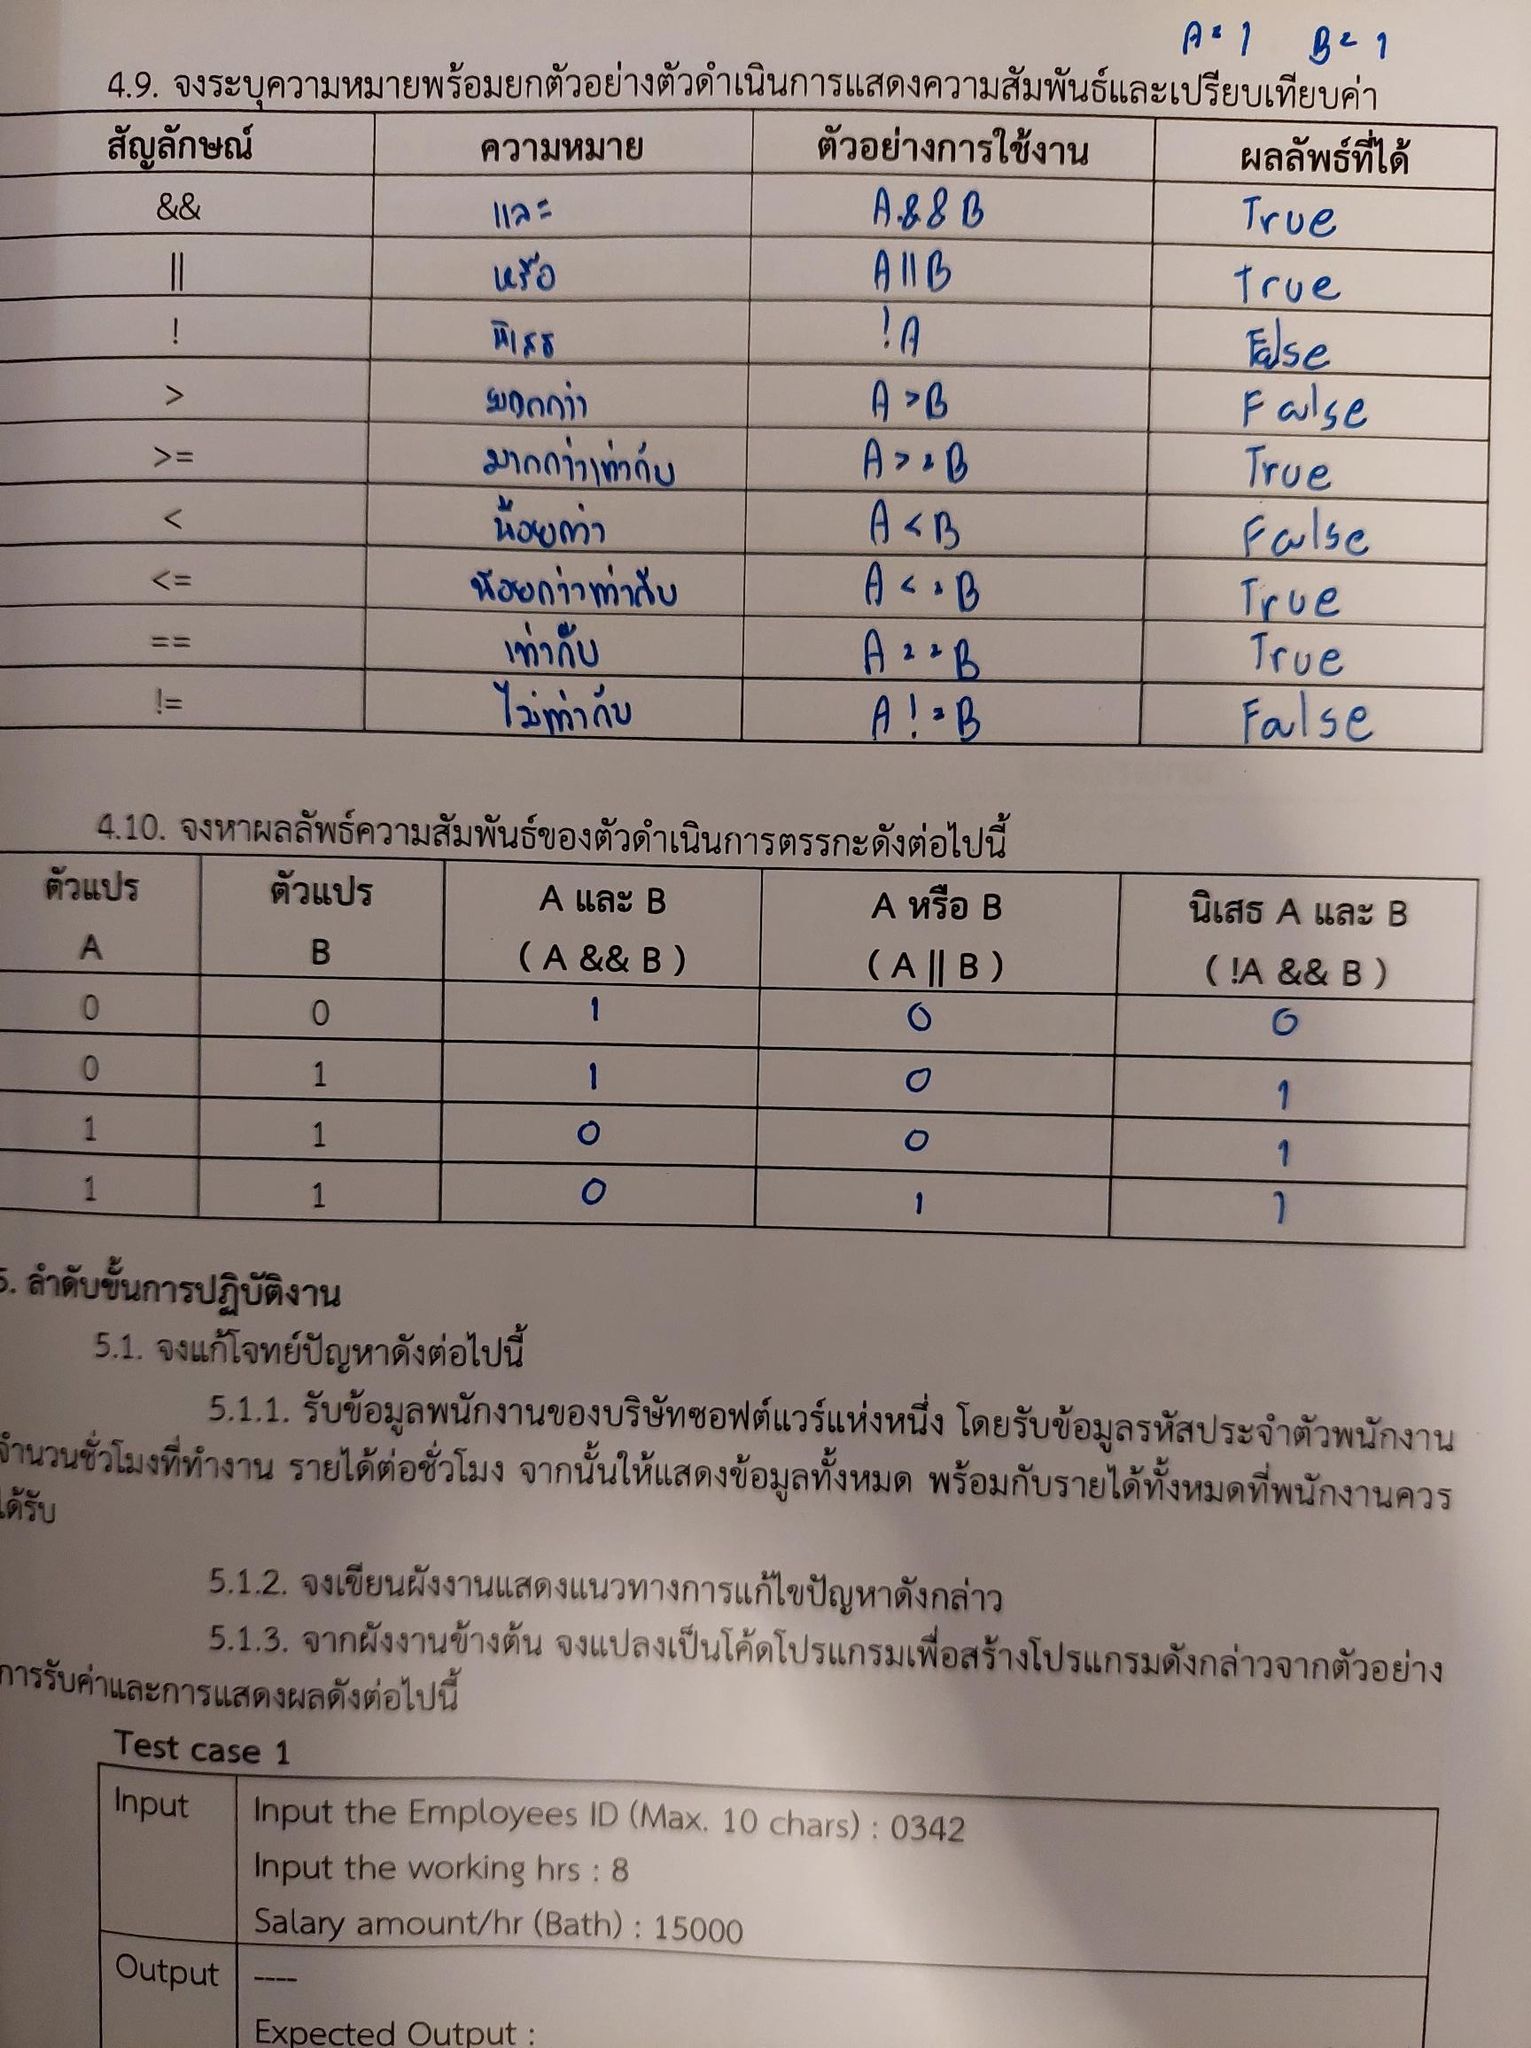 A = 1 B = 1
4.9. จงระบุความหมายพร้อมยกตัวอย่างตัวดำเนินการแสดงความสัมพันธ์และเปรียบเทียบค่า
สัญลักษณ์ ความหมาย ตัวอย่างการใช้งาน ผลลัพธ์ที่ได้
&& และ A && B True
|| หรือ A || B True
! นิเสธ !A False
> มากกว่า A > B False
>= มากกว่าเท่ากับ A >= B True
< น้อยกว่า A < B False
<= น้อยกว่าเท่ากับ A <= B True
== เท่ากับ A == B True
!= ไม่เท่ากับ A != B False
4.10. จงหาผลลัพธ์ความสัมพันธ์ของตัวดำเนินการตรรกะดังต่อไปนี้
ตัวแปร ตัวแปร A และ B A หรือ B นิเสธ A และ B
A B ( A && B ) ( A || B ) ( !A && B )
0 0 1 0 0
0 1 1 0 1
1 1 0 0 1
1 1 0 1 1
5. ลำดับขั้นการปฏิบัติงาน
5.1. จงแก้โจทย์ปัญหาดังต่อไปนี้
5.1.1. รับข้อมูลพนักงานของบริษัทซอฟต์แวร์แห่งหนึ่ง โดยรับข้อมูลรหัสประจำตัวพนักงาน
จำนวนชั่วโมงที่ทำงาน รายได้ต่อชั่วโมง จากนั้นให้แสดงข้อมูลทั้งหมด พร้อมกับรายได้ทั้งหมดที่พนักงานควร
ได้รับ
5.1.2. จงเขียนผังงานแสดงแนวทางการแก้ไขปัญหาดังกล่าว
5.1.3. จากผังงานข้างต้น จงแปลงเป็นโค้ดโปรแกรมเพื่อสร้างโปรแกรมดังกล่าวจากตัวอย่าง
การรับค่าและการแสดงผลดังต่อไปนี้
Test case 1
Input Input the Employees ID (Max. 10 chars) : 0342
Input the working hrs : 8
Salary amount/hr (Bath) : 15000
Output ----
Expected Output :